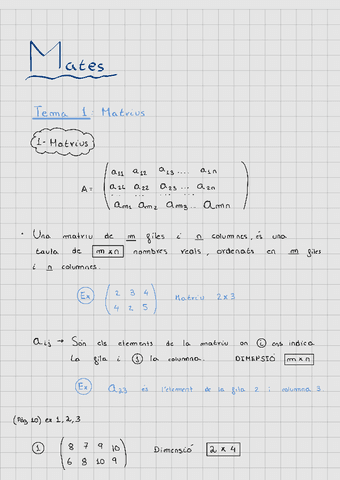 Mates
Tema 1: Matrius
1- Matrius
a11 a12 a13 .... a1n
A = a21 a22 a23 ... a2n
... ... ... ...
am1 am2 am3 ... amn
· Una matriu de m files i n columnes, és una
taula de m x n nombres reals, ordenats en m files
i n columnes.
Ex ( 2 3 4 Matriu 2x3
4 2 5 )
aij → Són els elements de la matriu on i ens indica
la fila i j la columna. DIMENSIÓ m x n
Ex a23 és l'element de la fila 2 i columna 3.
(Pàg 10) ex 1, 2, 3
1 ( 8 7 9 10 Dimensió 2 x 4
6 8 10 9 )